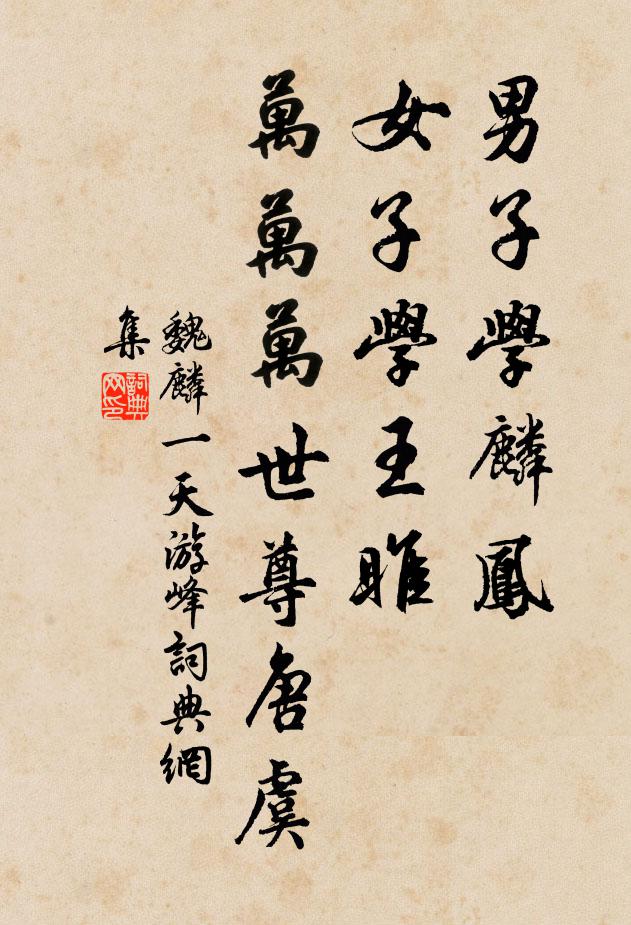 男子學麟鳳
女子學王睢
萬萬萬世尊唐虞
魏麟一天游峰詞典網
集
詞典网印